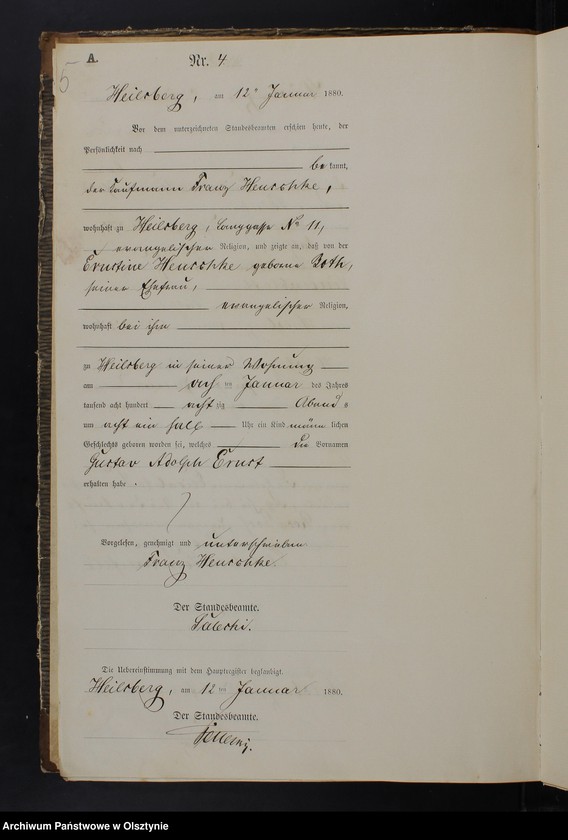 5
A.
Nr. 4
Heilsberg, am 12ten Januar 1880.
Vor dem unterzeichneten Standesbeamten erschien heute, der
Persönlichkeit nach
bekannt,
der Kaufmann Franz Henschke,
wohnhaft zu Heilsberg, Langgasse No 11,
evangelischer Religion, und zeigte an, daß von der
Ernstine Henschke geborne Roth,
seiner Ehefrau,
evangelischer Religion,
wohnhaft bei ihm
zu Heilsberg in seiner Wohnung
am ten Januar des Jahres
tausend acht hundert achtzig Abends
um acht ein halb Uhr ein Kind männlichen
Geschlechts geboren worden sei, welches die Vornamen
Gustav Adolph Ernst
erhalten habe.
Vorgelesen, genehmigt und unterschrieben
Franz Henschke.
Der Standesbeamte.
Die Uebereinstimmung mit dem Hauptregister beglaubigt.
Heilsberg, am 12ten Januar 1880.
Der Standesbeamte.
Archiwum Państwowe w Olsztynie